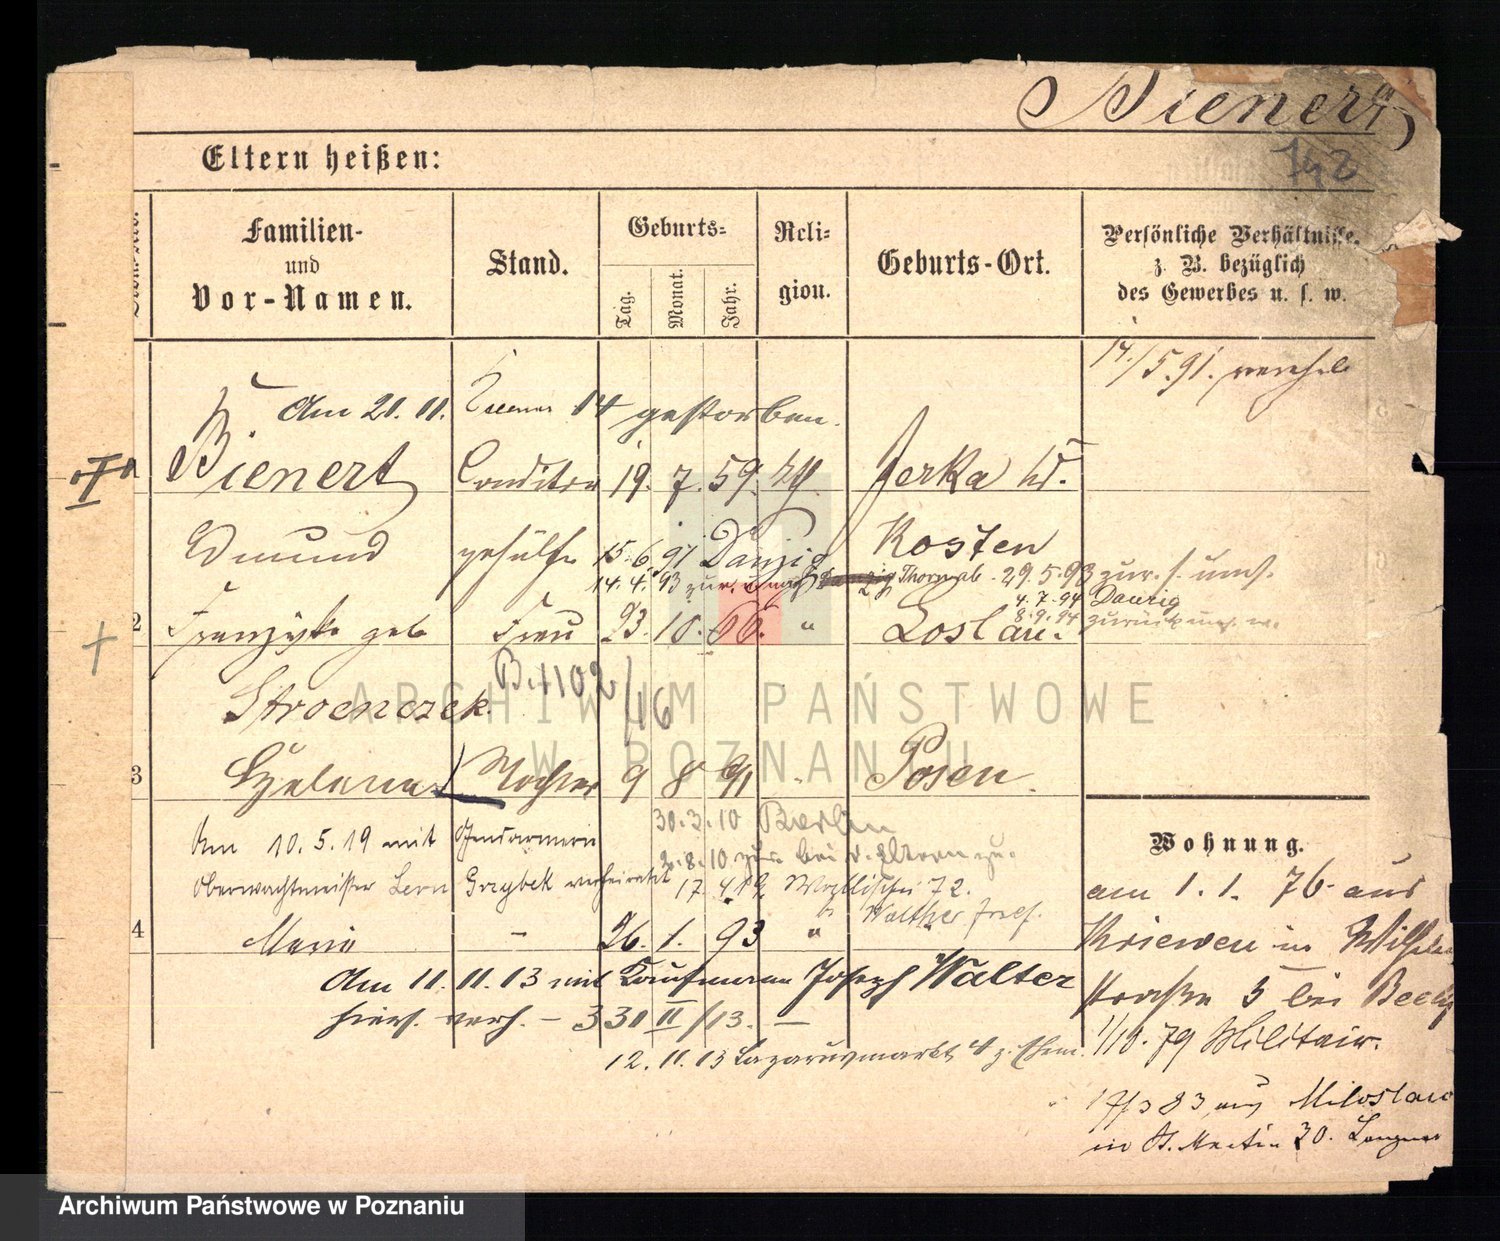 Bienert
142
Eltern heißen:
Familien-
und
Vor-Namen.
Stand.
Geburts-
Tag.
Monat.
Jahr.
Reli-
gion.
Geburts-Ort.
Persönliche Verhältnisse.
z. B. bezüglich
des Gewerbes u. s. w.
14./5.91.
Am 21. 11. 14 gestorben.
1 Bienert Conditor 19. 7. 59. Jerka
Edmund gehülfe 15. 6. 91 Danzig Kosten
14. 4. 93 zur. Thorn ab. 29. 5. 93 zur.
4. 7. 94 Danzig
8. 9. 94 zurück
2 geb Frau 23. 10. 66. " Loslau.
B. 1102/16
Stroenczek.
3 Helena Tochter 9 8 91 Posen.
30. 3. 10 Berlin
Am 10. 5. 19 mit Gendarmerie
2. 8. 10 zur. bei d. Eltern zu.
Oberwachtmeister Leon Grzybek verheiratet
17. 4. 19 Wallischei 72.
b. Walther Josef.
4 Maria – 26. 1. 93 "
Am 11. 11. 13 mit Kaufmann Joseph Walter
hiers. verh. – 331 II/13. –
12. 11. 13 Lazarusmarkt 4 z. Ehem.
Wohnung.
am 1. 1. 76 aus
Kriewen in Wilhelm
straße 5 bei Beely
1/10. 79 Militair.
17/3 83 aus Miloslaw
in St. Martin 30.
ARCHIWUM PAŃSTWOWE
W POZNANIU
Archiwum Państwowe w Poznaniu